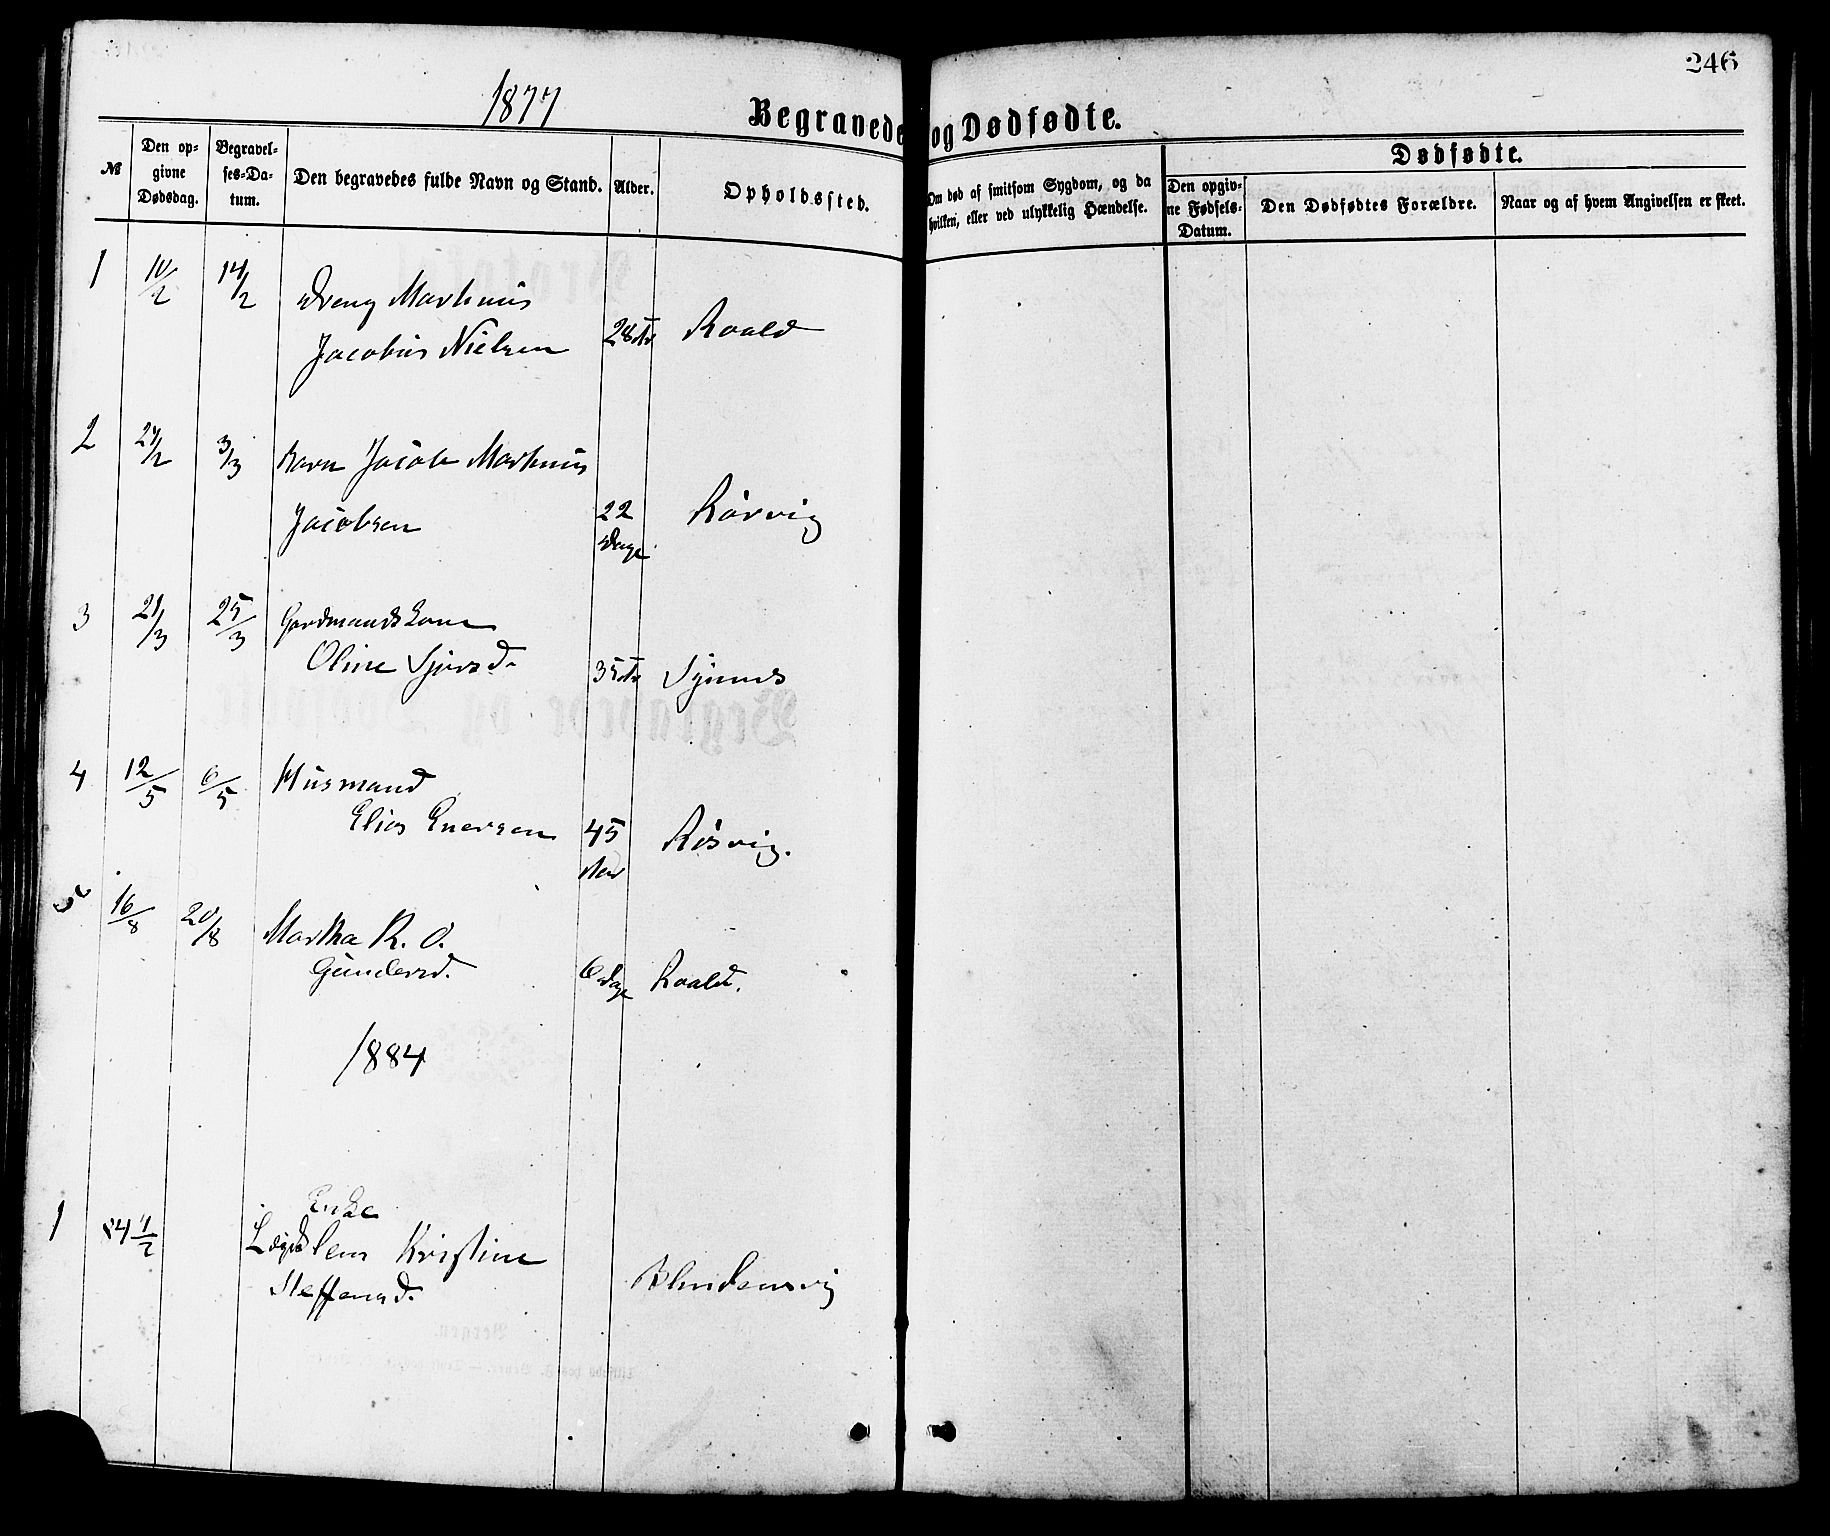 246
1877
Begravede og Dødfødte.
№
Den op-
givne
Dødsdag.
Begravel-
ses-Da-
tum.
Den begravedes fulde Navn og Stand.
Alder.
Opholdssted.
Om død af smitsom Sygdom, og da
hvilken, eller ved ulykkelig Hændelse.
Dødfødte.
Den opgiv-
ne Fødsels-
Datum.
Den Dødfødtes Forældre.
Naar og af hvem Angivelsen er skeet.
1 10/2 14/2 Dreng Martinus
Jacobus Nielsen 28 Roald
2 3/3 Barn Jacob Martinus
Jacobsen 22 Rörvig
Dage
3 21/3 25/3 Gardmandskone
Oline Sjursd. 35 Synnes
4 12/5 6/5 Husmand
Elias Enersen 45 Rösvig.
Aar
5 16/8 20/8 Martha R. O.
Gundersd. 6 Dage Roald.
1884
1 Enke
Lægdslem Kristine
Steffensd. Blindemsvig